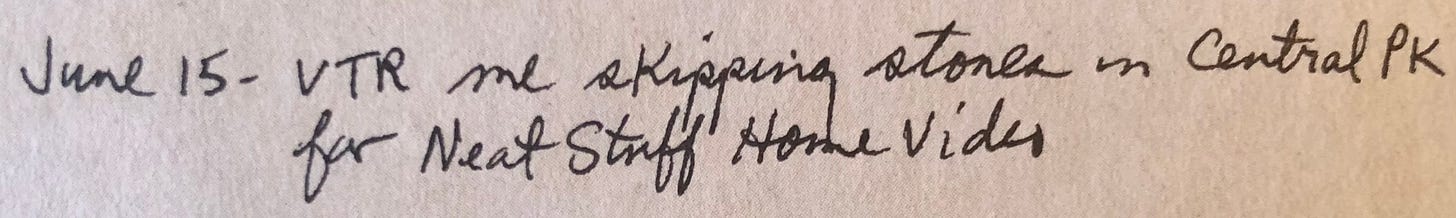 June 15- VTR me skipping stones in Central PK
for Neat Stuff Home Video